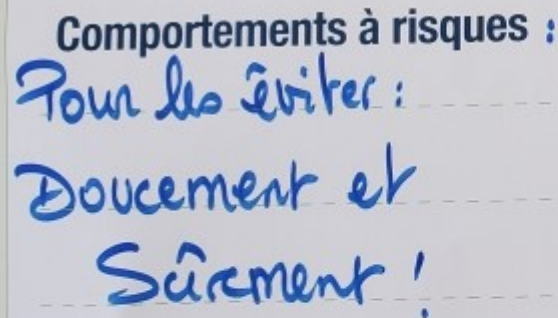 Comportements à risques :
Pour les éviter :
Doucement et
Sûrment !